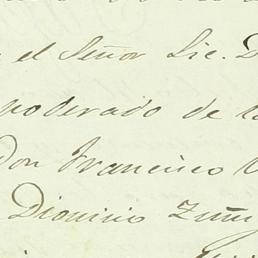 el Señor Lic. D
poderado de la
Don Francisco
Dionicio Zuñi